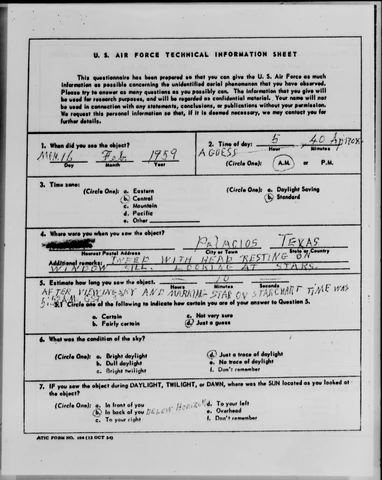 U. S. AIR FORCE TECHNICAL INFORMATION SHEET
This questionnaire has been prepared so that you can give the U. S. Air Force as much
information as possible concerning the unidentified aerial phenomenon that you have observed.
Please try to answer as many questions as you possibly can. The information that you give will
be used for research purposes, and will be regarded as confidential material. Your name will
not be used in connection with any statements, conclusions, or publications without your permission.
We request this personal information so that, if it is deemed necessary, we may contact you for
further details.
1. When did you see the object?
16 Feb 1959
Day Month Year
2. Time of day: 5 40 Aprox
Hour Minutes
(Circle One): A.M. or P.M.
3. Time zone:
(Circle One): a. Eastern
b. Central
c. Mountain
d. Pacific
e. Other
(Circle One): a. Daylight Saving
b. Standard
4. Where were you when you saw the object?
PALACIOS TEXAS
Nearest Postal Address City or Town State or Country
Additional remarks: WITH HEAD RESTING ON
WINDOW SILL. LOOKING AT STARS.
5. Estimate how long you saw the object. 10
Hours Minutes Seconds
AFTER VIEWING SKY AND MARKING STAR ON STAR CHART TIME WAS
5.1 Circle one of the following to indicate how certain you are of your answer to Question 5.
a. Certain
b. Fairly certain
c. Not very sure
d. Just a guess
6. What was the condition of the sky?
(Circle One): a. Bright daylight
b. Dull daylight
c. Bright twilight
d. Just a trace of daylight
e. No trace of daylight
f. Don't remember
7. IF you saw the object during DAYLIGHT, TWILIGHT, or DAWN, where was the SUN located as you looked at
the object?
(Circle One): a. In front of you
b. In back of you BELOW HORIZON
c. To your right
d. To your left
e. Overhead
f. Don't remember
ATIC FORM NO. 164 (13 OCT 54)